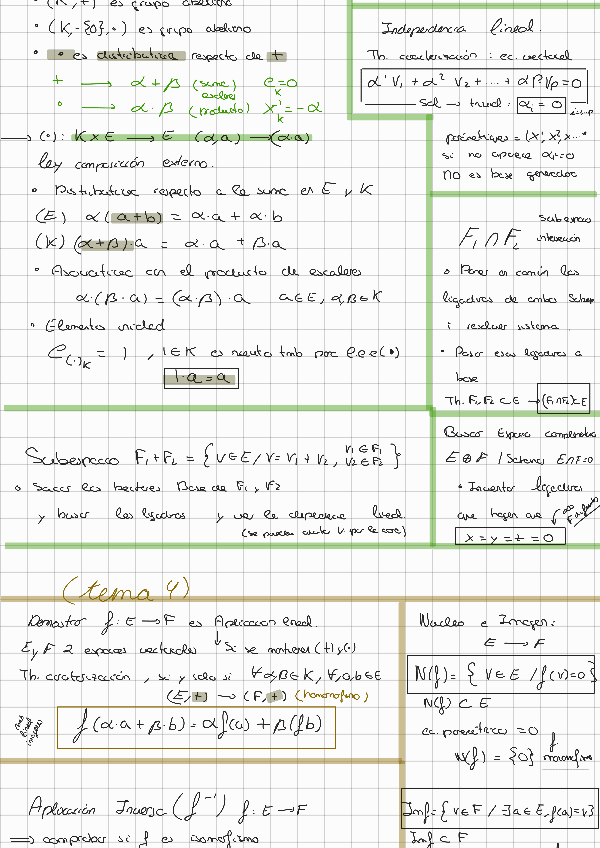 (K, +) es grupo abeliano
• (K, -{0}, ·) es grupo abeliano
• · es distributiva respecto de +
+ → α + β (suma) e = 0
escalar K
· → α · β (producto) x' = -α
K
→ (·): K × E → E (α, a) → (α·a)
ley composición externo.
• Distributiva respecto a la suma en E y K
(E) α(a+b) = α·a + α·b
(K) (α+β)·a = α·a + β·a
• Asociativa con el producto de escalares
α·(β·a) = (α·β)·a a∈E, α,β∈K
• Elemento unidad
e(·)K = 1 , 1∈K es neutro tmb para l.c.e(·)
1·a = a
Independencia lineal.
Th. caracterización : ec. vectorial
α¹ V₁ + α² V₂ + .... + αᵖ Vp = 0
sol → trivial: αi = 0
paramétricas = (x¹, x², x...
si no aparece αi=0
NO es base generador
F₁ ∩ F₂ subespacio
intersección
• Poner en común las
ligaduras de ambos Subesp
i resolver sistema.
• Pasar esas ligaduras a
base
Th. F₁, F₂ ⊂ E → (F₁∩F₂) ⊂ E
Subespacio F₁+F₂ = { v∈E / v = v₁ + v₂ , v₁∈F₁ v₂∈F₂ }
• Sacar los vectores Base de F₁ y F₂
y buscar las ligaduras y ver la dependencia lineal.
(se pueden quitar V por la cara)
Buscar Espacio complementario
E ⊕ F / Sistema E∩F=0
• Inventar ligaduras
que hagan que
x = y = z = 0
(tema 4)
Demostrar f: E → F es Aplicación lineal.
E y F 2 espacios vectoriales ↓ Si se mantienen (+) y (·)
Th. caracterización , si y solo si ∀α,β∈K, ∀a,b∈E
(E, +) → (F, +) (homomorfismo)
f(α·a + β·b) = αf(a) + β(fb)
Núcleo e Imagen:
E → F
N(f) = { v∈E / f(v)=0 }
N(f) ⊂ E
ec. paramétrica = 0
N(f) = {0} f monomorfismo
Imf = { v∈F / ∃a∈E, f(a)=v }
Imf ⊂ F
Aplicación Inversa (f⁻¹) f: E → F
⇒ comprobar si f es isomorfismo